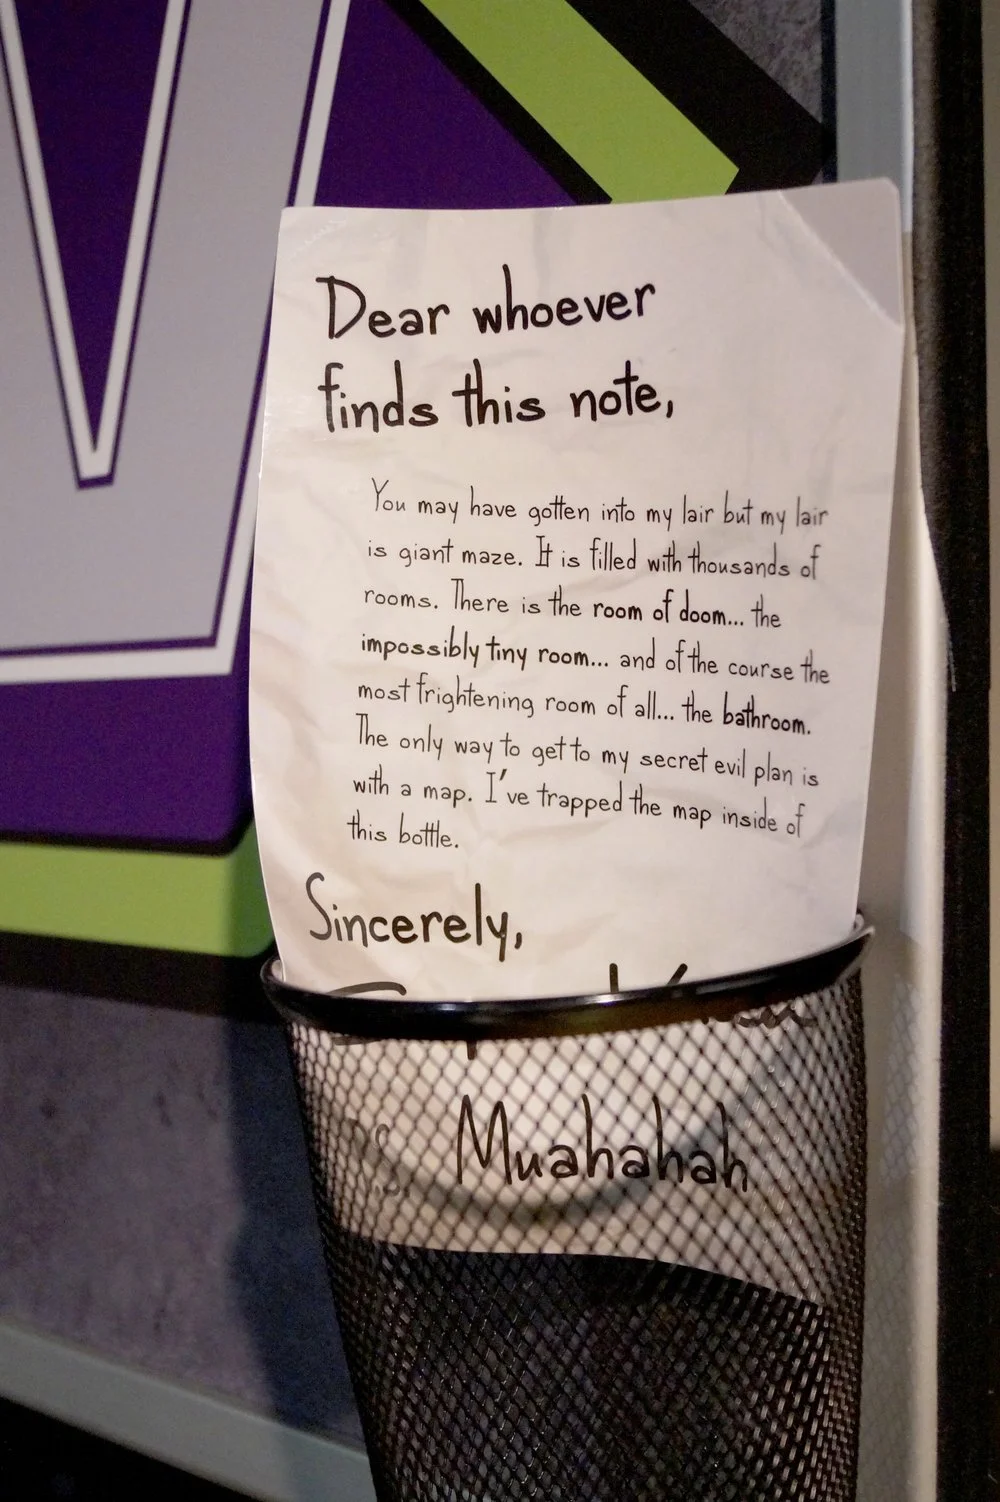 Dear whoever
finds this note,
You may have gotten into my lair but my lair
is giant maze. It is filled with thousands of
rooms. There is the room of doom... the
impossibly tiny room... and of the course the
most frightening room of all... the bathroom.
The only way to get to my secret evil plan is
with a map. I've trapped the map inside of
this bottle.
Sincerely,
P.S. Muahahah